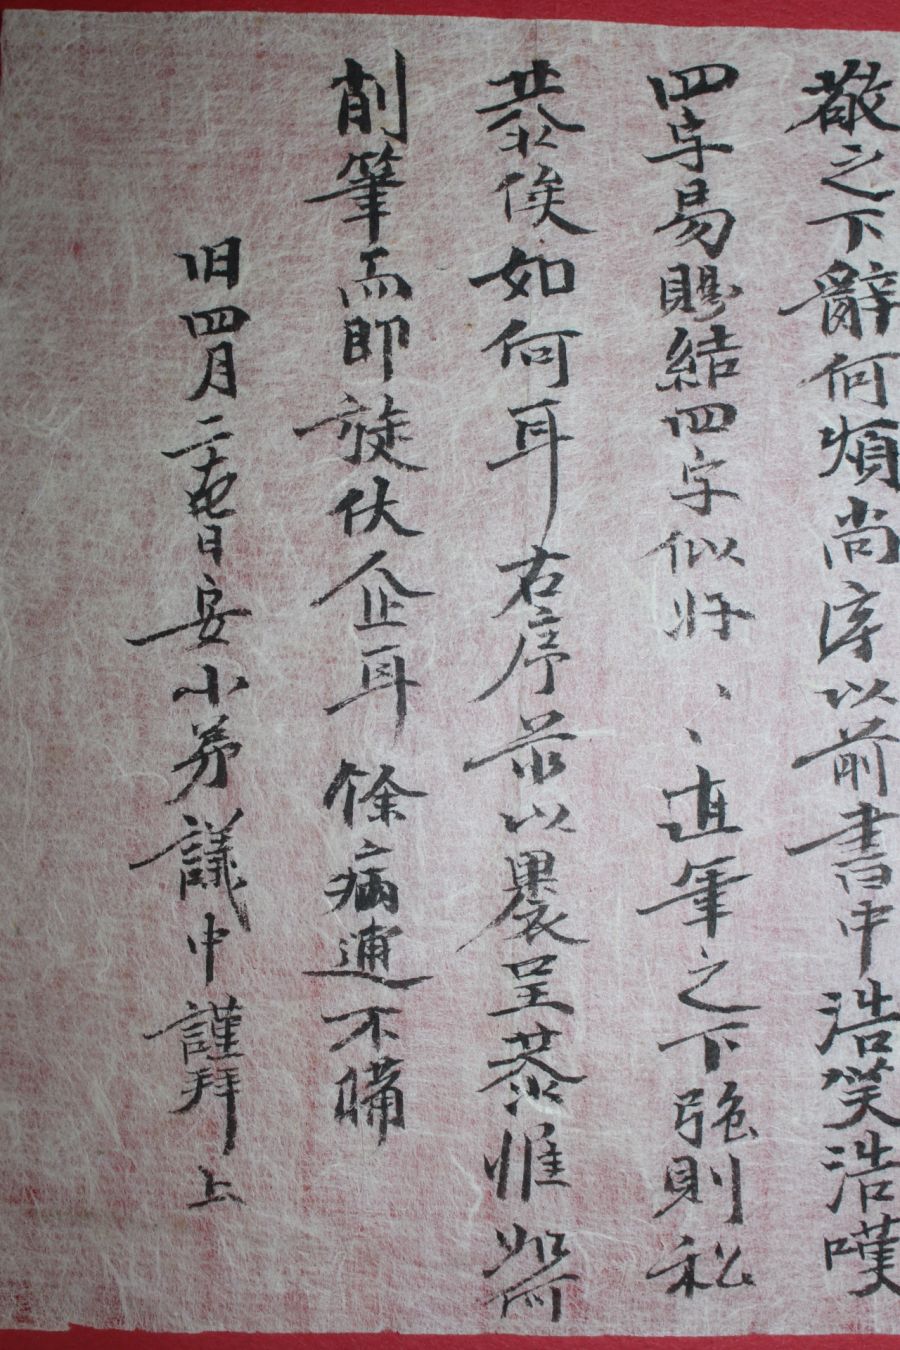 敬之下辭何煩尚存以前書中浩笑浩嘆
四字易賜結四字似好〻直筆之下強則私
恭俟如何耳右序並以裹呈恭惟如何
削筆而即旋伏企耳餘病逋不備
旧四月二十四日安小弟議中謹拜上